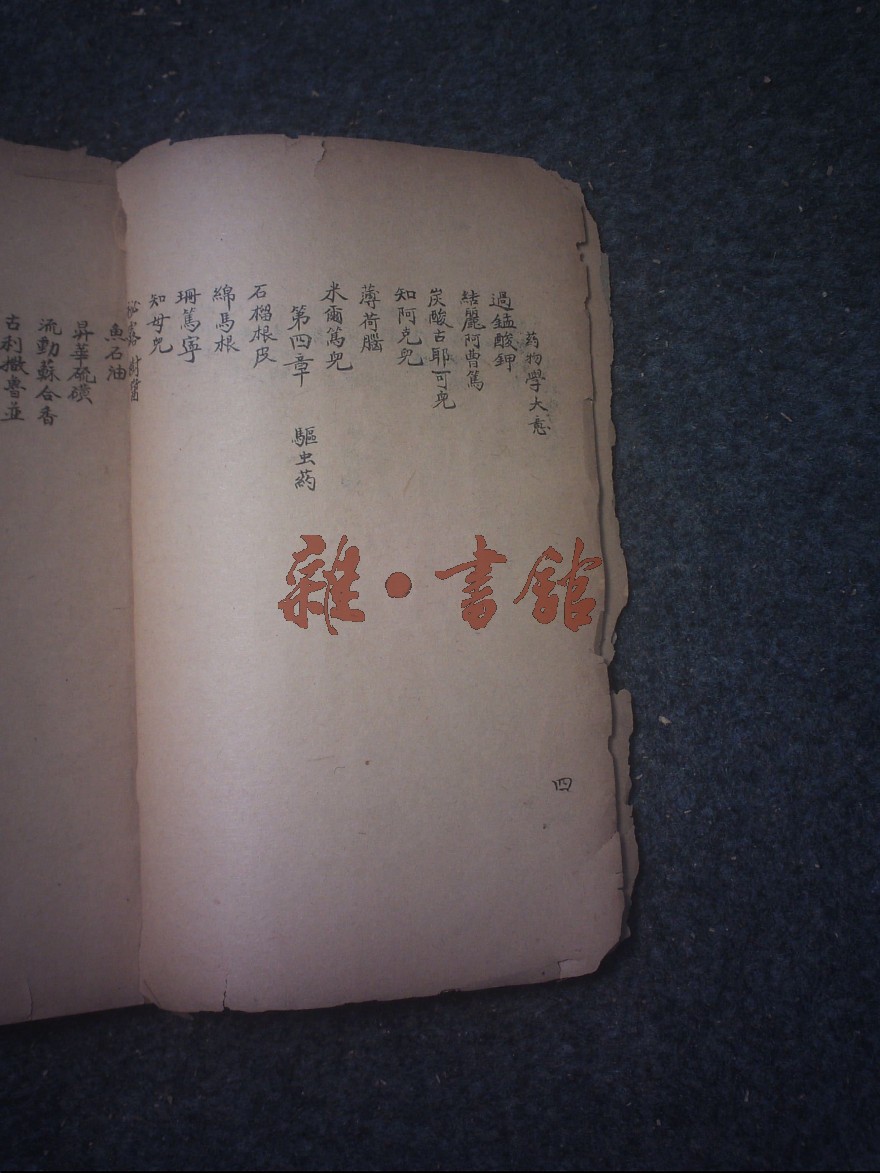 药物學大意
過錳酸鉀
結麗阿曹篤
炭酸古耶可兜
知阿克兜
薄荷腦
米爾篤兜
第四章 驅虫药
石榴根皮
綿馬根
珊篤寧
知母兜
魚石油
昇華硫磺
流動蘇合香
古利撒魯並
四
雜·書館